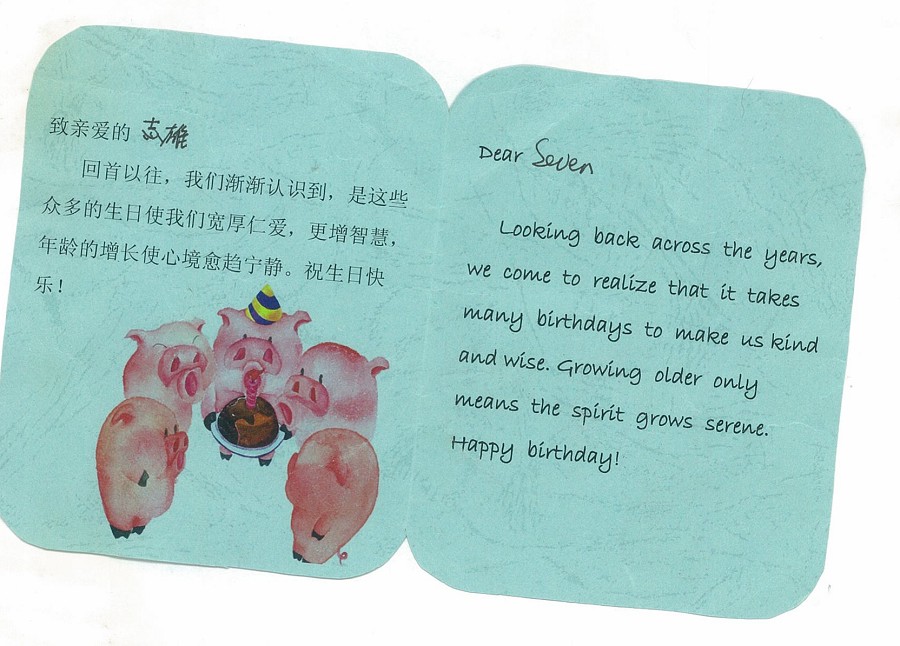 致亲爱的 志雄
回首以往，我们渐渐认识到，是这些
众多的生日使我们宽厚仁爱，更增智慧，
年龄的增长使心境愈趋宁静。祝生日快
乐！
Dear Seven
Looking back across the years,
we come to realize that it takes
many birthdays to make us kind
and wise. Growing older only
means the spirit grows serene.
Happy birthday!